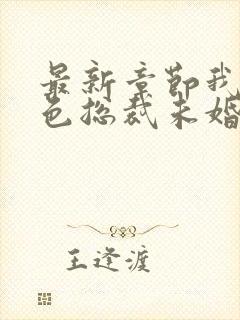 最新章节我
色总裁未婚
王逢渡